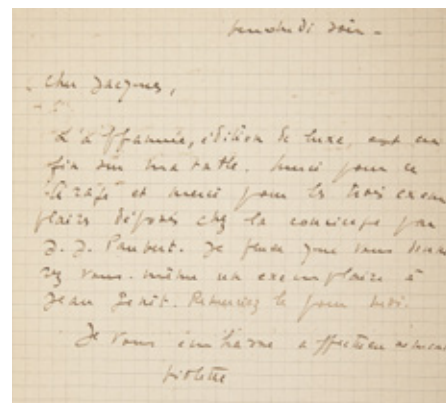 vendredi soir -
Cher Jacques,
L'affamée, édition de luxe, est en
fin sur ma table. Merci pour ce
tirage et merci pour les trois exem
plaires déposés chez la concierge par
J. J. Pauvert. Je pense que vous donne
rez vous-même un exemplaire à
Jean Genet. Remerciez le pour moi.
Je vous embrasse affectueusement
Violette